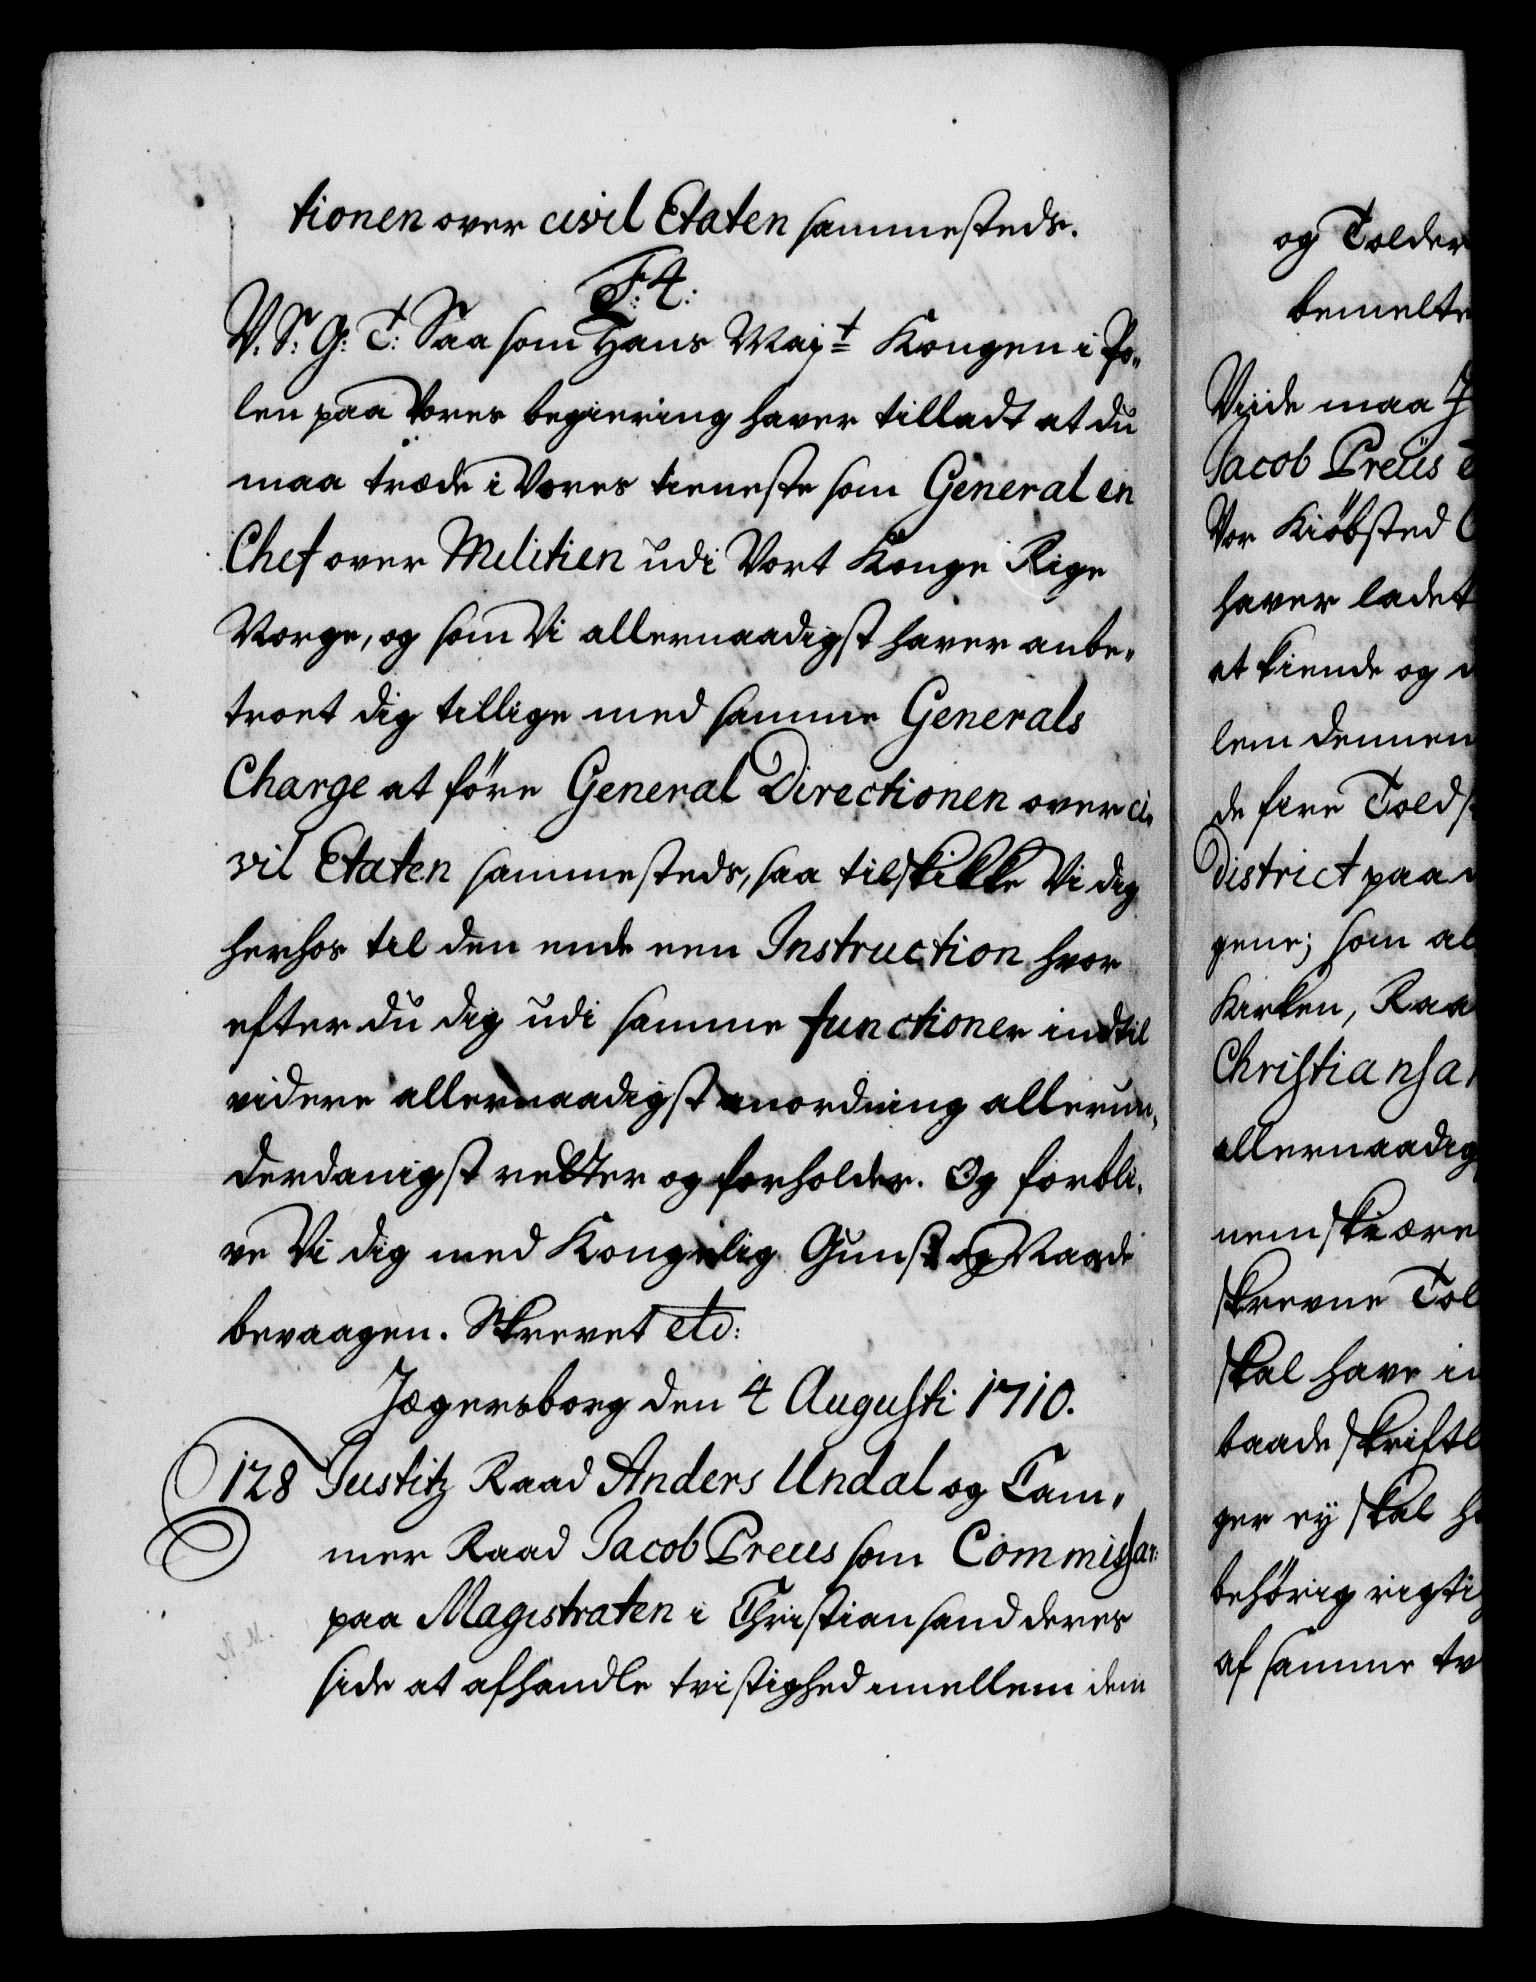 tionen over civil Etaten sammesteds.
F: 4:
V. S: G: T: Saa som Hans Mayt Kongen i Po„
len paa Vores begiering haver tilladt at du
maa træde i Vores tieneste som General en
Chef over Militien udi Vort Konge Rige
Norge, og som Vi allernaadigst haver anbe„
troet dig tillige med samme Generals
Charge at føre General Directionen over ci„
vil Etaten sammesteds, saa tilskikke Vi dig
herhos til den ende een Instruction hvor
efter du dig udi samme functioner indtil
videre allernaadigst anordning allerun„
derdanigst retter og forholder. Og forbli„
ve Vi dig med Kongelig Gunst og Naade
bevaagen. Skrevet etc:
Jægersborg den 4 Augusti 1710.
128 Justitz Raad Anders Undal og Cam„
mer Raad Jacob Preus som Commissar:
paa Magistraten i Christiansand deres
side at afhandle tvistighed imellem dem
og Tolder
bemelte
Viide maa
Jacob Preüs
Vor Kiøbsted
haver ladet
at kiende og
lem dennem
de fire Told
District paa
gene; som al
Kirken, Raa
Christiansa
allernaadig
nemskiære
skrevne Tol
skal have in
baade skriftl
ger ey skal h
behørig rigti
af samme tv